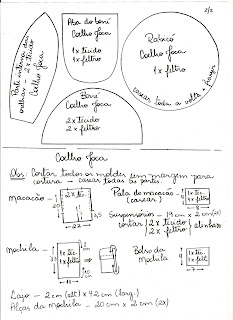 2/2
Parte interna das
orelhas - 2x tecido
Coelho Joca
Aba do boné
Coelho Joca
1x tecido
1x feltro
Rabicó
Coelho Joca
1x feltro
casear toda a volta franzir
Boné
Coelho Joca
2x tecido
2x feltro
Coelho Joca
Obs: Cortar todos os moldes sem margem para
costura - casear todas as partes
macacão →
22
Pala do macacão →
(casear)
1x tec.
1x feltro
8
Suspensórios - 19 cm x 2 cm (2x)
cortar 2x tecido
2x feltro
alinhavo
mochila →
1x tec
1x feltro
11
Bolso da
mochila →
1x tec
1x feltro
7
Laço - 2 cm (alt) x 42 cm (larg.)
Alças da mochila - 20 cm x 2 cm (2x)